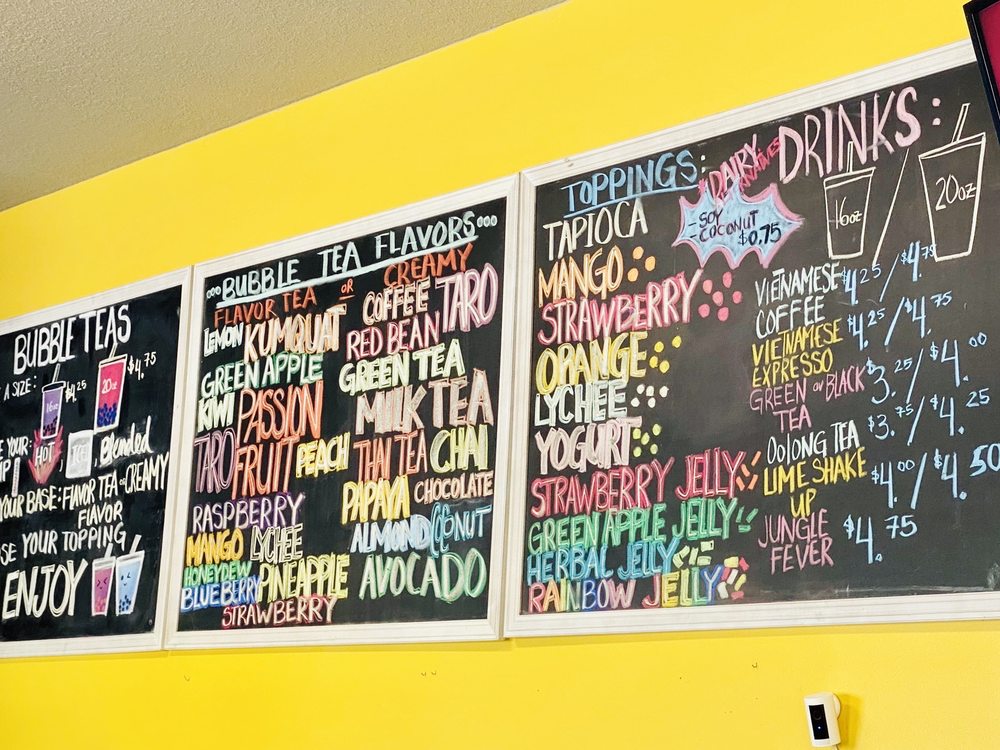 BUBBLE TEAS
A SIZE:
16oz
$4.25
20oz
$4.75
YOUR:
HOT
ICE
Blended
YOUR BASE: FLAVOR TEA OR CREAMY
FLAVOR
YOUR TOPPING
ENJOY
BUBBLE TEA FLAVORS
FLAVOR TEA OR CREAMY
LEMON
KUMQUAT
GREEN APPLE
KIWI
PASSION
FRUIT
TARO
PEACH
RASPBERRY
MANGO
LYCHEE
HONEYDEW
PINEAPPLE
BLUEBERRY
STRAWBERRY
COFFEE
TARO
RED BEAN
GREEN TEA
MILK TEA
THAI TEA
CHAI
PAPAYA
CHOCOLATE
ALMOND
COCONUT
AVOCADO
TOPPINGS:
TAPIOCA
MANGO
STRAWBERRY
ORANGE
LYCHEE
YOGURT
STRAWBERRY JELLY
GREEN APPLE JELLY
HERBAL JELLY
RAINBOW JELLY
DAIRY
- SOY
- COCONUT
$0.75
DRINKS:
16oz / 20oz
VIETNAMESE $4.25 / $4.75
COFFEE
VIETNAMESE $4.25 / $4.75
EXPRESSO
GREEN OR BLACK $3.25 / $4.00
TEA
OOLONG TEA $3.75 / $4.25
LIME SHAKE $4.00 / $4.50
UP
JUNGLE $4.75
FEVER